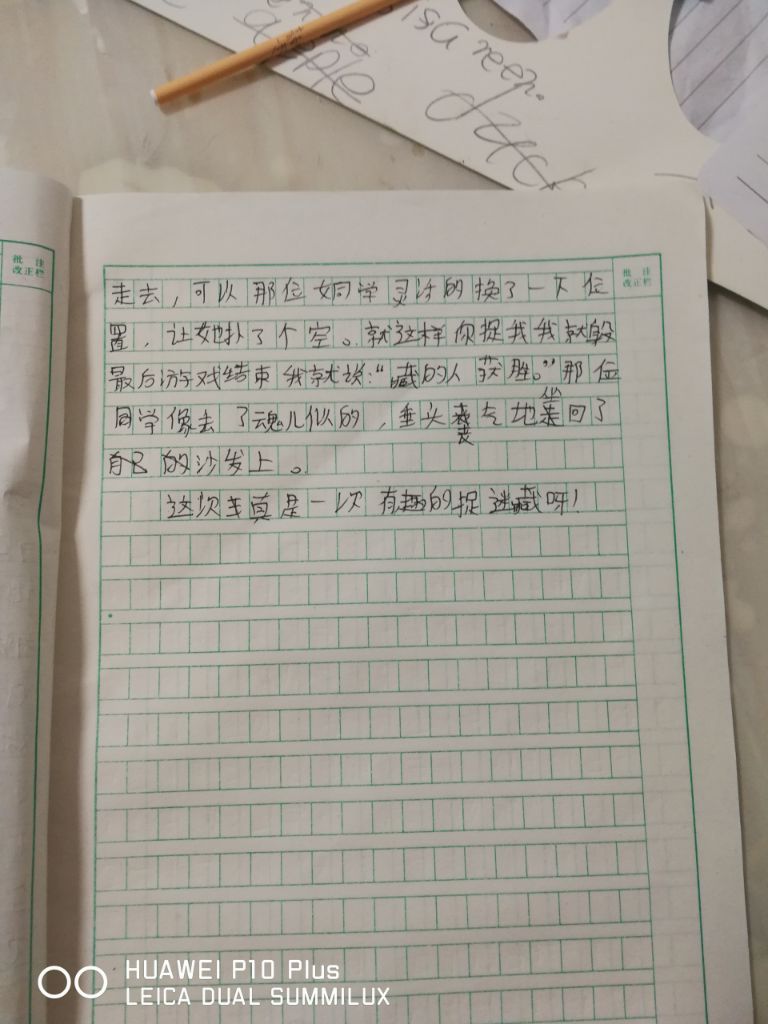 isagreen.
apple duck
批 注
改正栏
批 注
改正栏
走去，可以那位女同学灵活的换了一下位
置，让她扑了个空。就这样你捉我我就躲
最后游戏结束我就说：“藏的人获胜。”那位
同学像去了魂儿似的，垂头丧气地坐回了
自己的沙发上。
这次真是一次有趣的捉迷藏呀！
HUAWEI P10 Plus
LEICA DUAL SUMMILUX